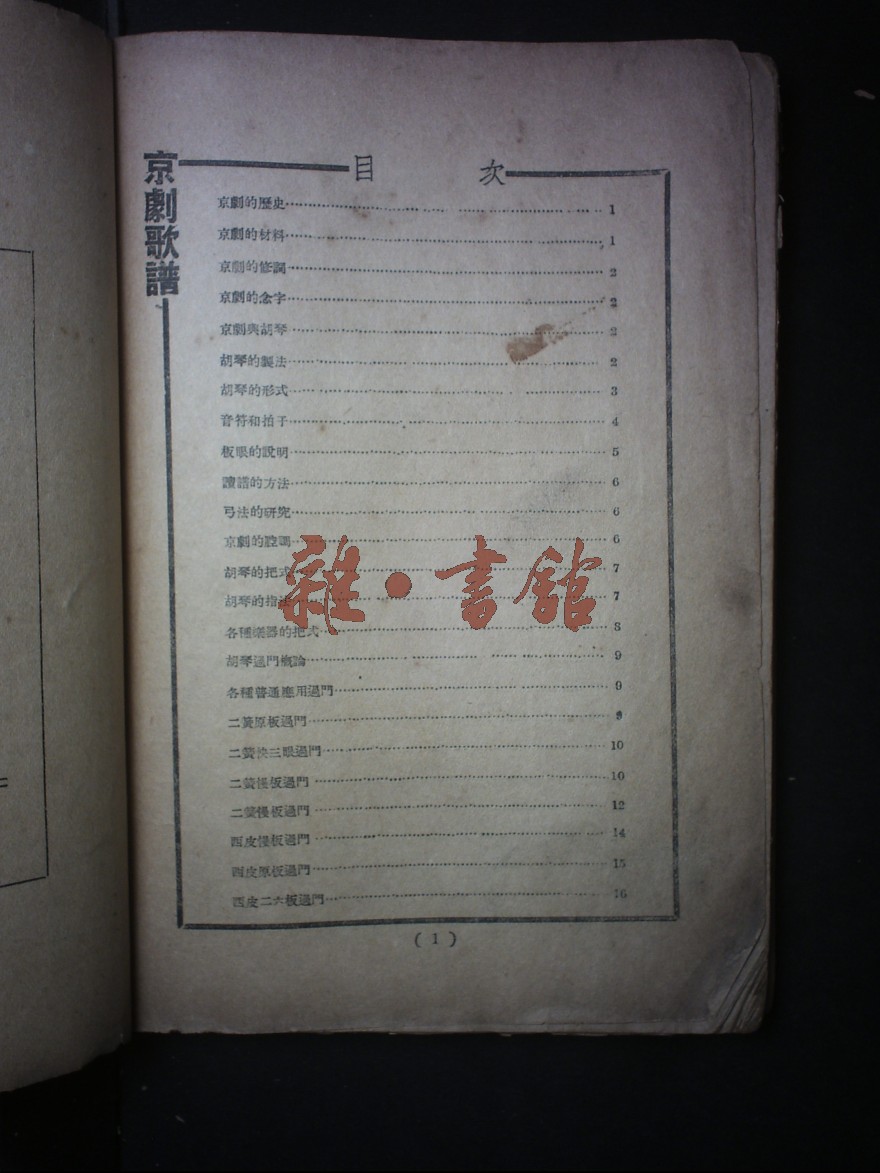 京劇歌譜
目 次
京劇的歷史 1
京劇的材料 1
京劇的修詞 2
京劇的念字 2
京劇與胡琴 2
胡琴的製法 2
胡琴的形式 3
音符和拍子 4
板眼的說明 5
讀譜的方法 6
弓法的研究 6
京劇的腔調 6
胡琴的把式 7
胡琴的指法 7
各種樂器的把式 8
胡琴過門概論 9
各種普通應用過門 9
二簧原板過門 9
二簧快三眼過門 10
二簧慢板過門 10
二簧慢板過門 12
西皮慢板過門 14
西皮原板過門 15
西皮二六板過門 16
(1)
雜·書館